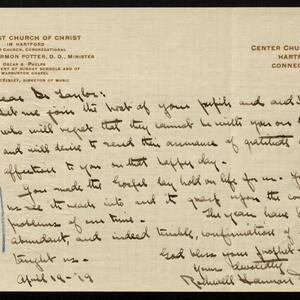 ST CHURCH OF CHRIST
IN HARTFORD
CHURCH, CONGREGATIONAL
RMON POTTER, D. D., MINISTER
OSCAR A. PHELPS
ENT OF SUNDAY SCHOOLS AND OF
WARBURTON CHAPEL
KINLEY, DIRECTOR OF MUSIC
CENTER CHU
HARTF
CONNEC
ear Dr Taylor:
et me join the host of your pupils and
who will regret that they cannot be with you on
and will desire to send this assurance of gratitude
affections to you on that happy day.
You made the Gospel lay hold on life for us.
us see its reach into and its grasp upon the co
problems of our time. The years have b
abundant, and indeed trouble, confirmation of
taught us. God bless your prophet
Yours devotedly
April 19-'19 Rockwell Harmon